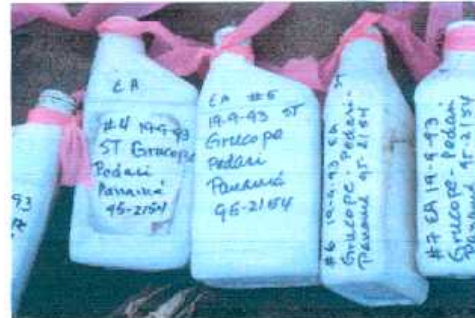 93
EA
#4 19-9-93
ST Grucope
Pedasi
Panamá
95-2154
EA #5
19-9-93 ST
Grucope
Pedasi
Panamá
95-2154
ST
#6 19-9-93 EA
Grucope-Pedasi-
Panamá 95-2154
#7 EA 19-9-93
Grucope-Pedasi
95-2154